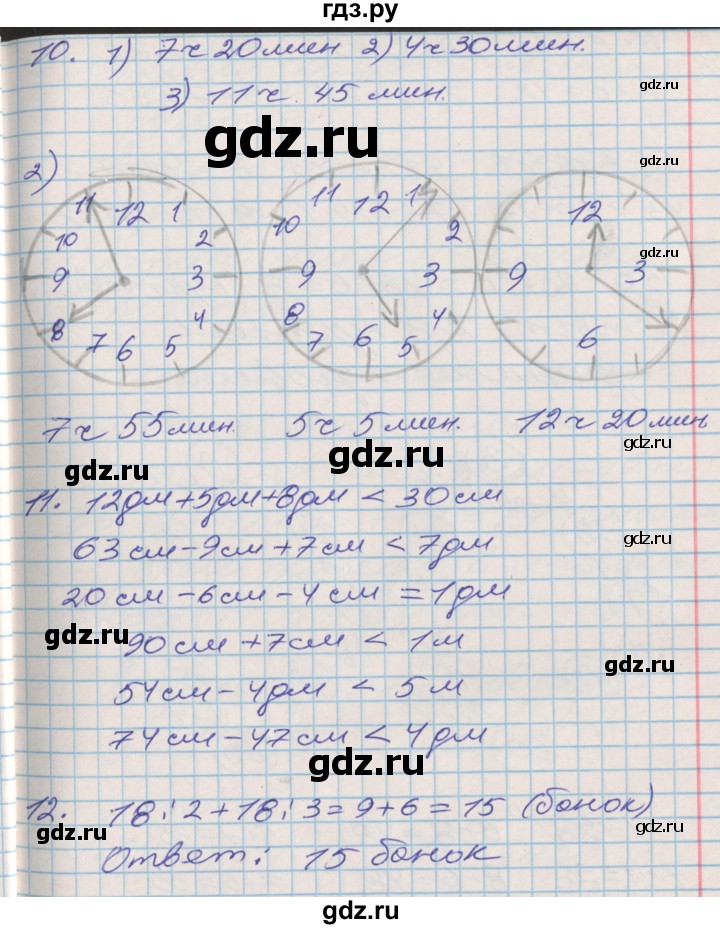 гдз.ру
10. 1) 7 ч 20 мин 2) 4 ч 30 мин.
gdz.ru
3) 11 ч. 45 мин.
gdz.ru
gdz.ru
2)
11 12 1 2 3 4 5 6 7 8 9 10
11 12 1 2 3 4 5 6 7 8 9 10
12 3 6 9
gdz.ru
7 ч 55 мин. 5 ч 5 мин. 12 ч 20 мин
gdz.ru gdz.ru gdz.ru
11. 12дм + 5дм + 8дм < 30 см
63 см - 9см + 7 см < 7дм
gdz.ru
20 см - 6см - 4 см = 1дм
gdz.ru
90 см + 7см < 1 м
gdz.ru
54 см - 4дм < 5 м
74 см - 47 см < 4 дм
gdz.ru
12. 18 : 2 + 18 : 3 = 9 + 6 = 15 (банок)
gdz.ru
Ответ: 15 банок
gdz.ru
gdz.ru